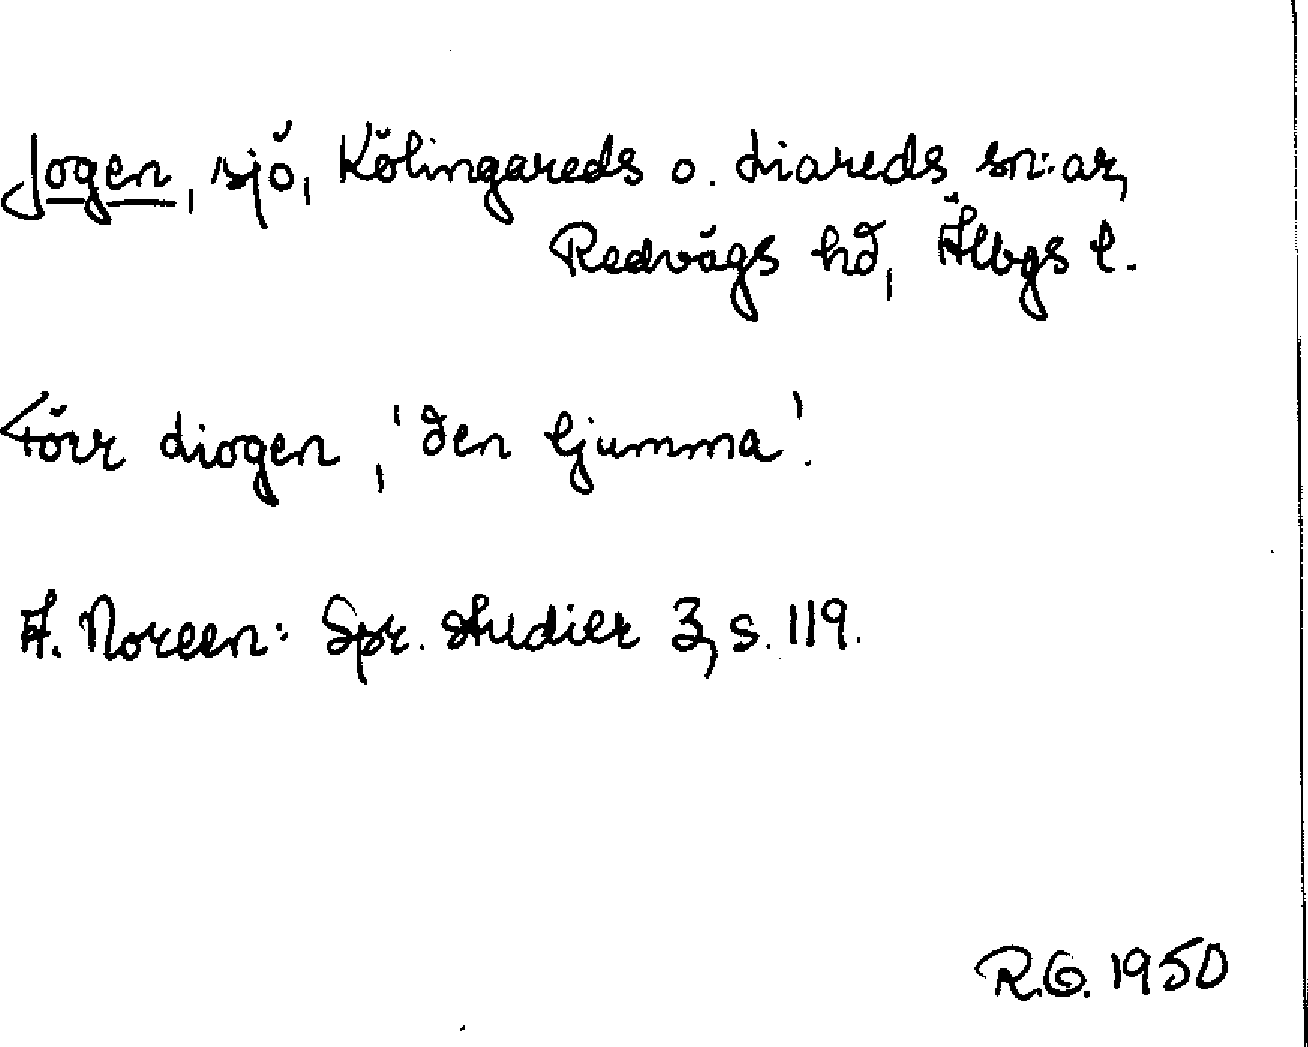 Jogen, sjö, Kölingareds o. Liareds sn:ar,
Redvägs hd, Älvbgs l.
Förr Liogen, 'den ljumma'.
A. Noreen: Spr. studier 3, s. 119.
R.G. 1950